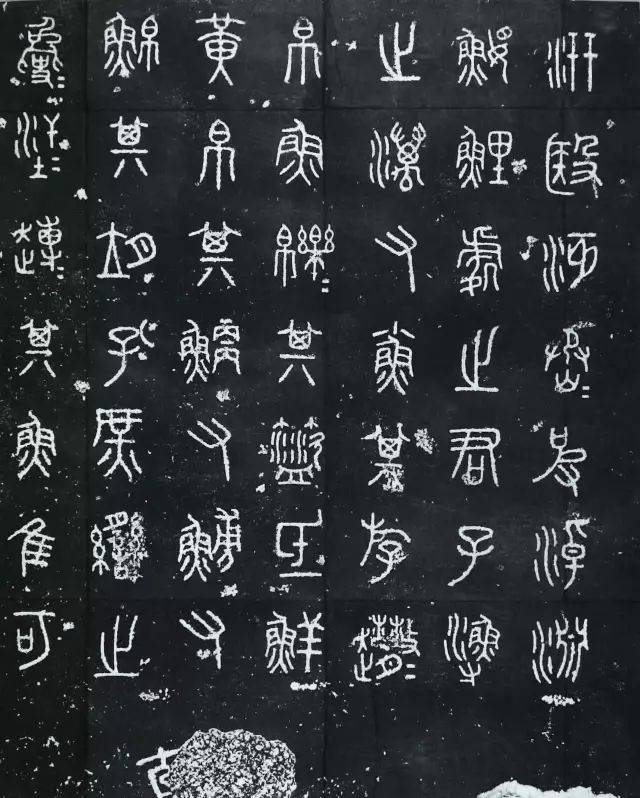 汧殹沔丞皮淖淵
鰋鯉處之君子漁
之澫又小魚其斿
帛魚皪其盜氐鮮
黃帛其鯾又䱥又
鮊其孔庶臠之
其魚隹可